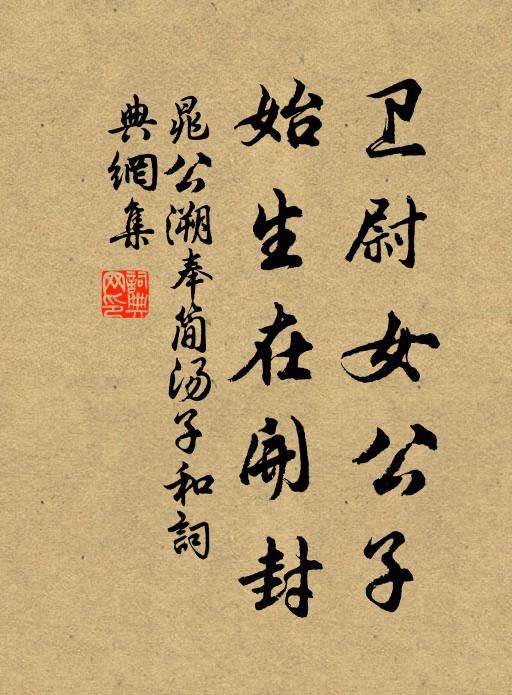 卫尉女公子
始生在開封
晁公溯奉简汤子和詞
典網集
詞典
网印